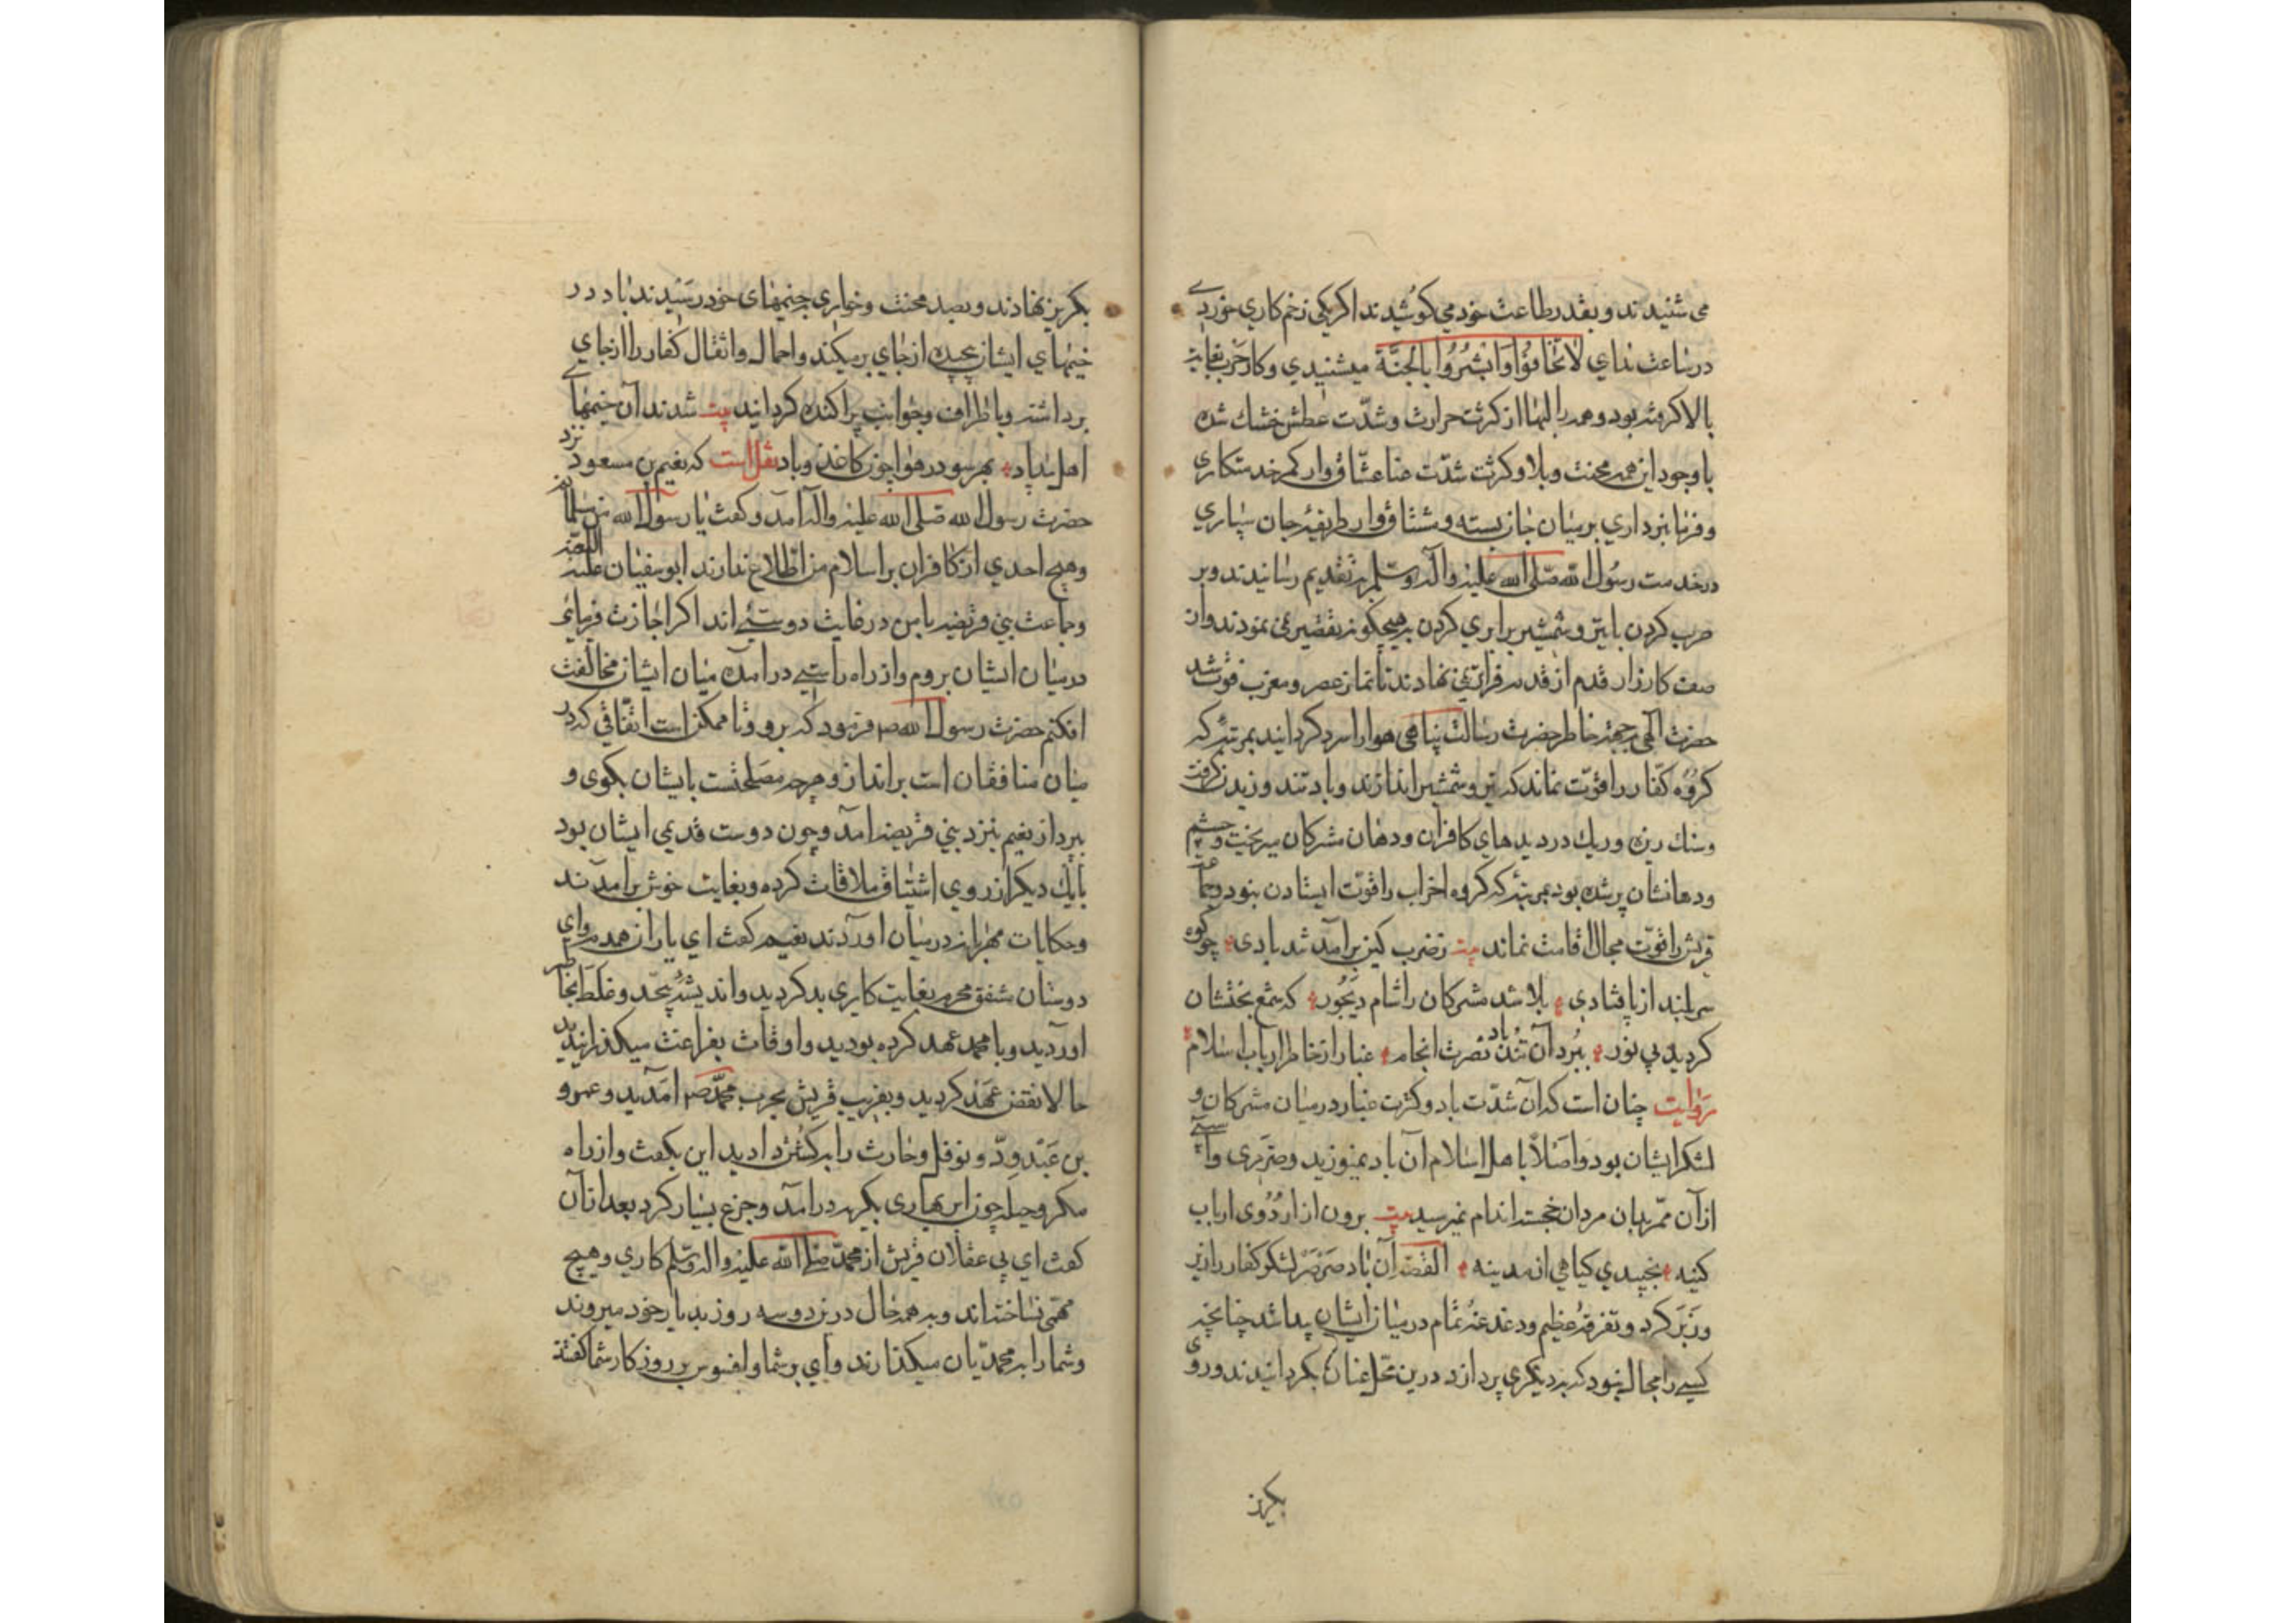 می شنیدند و بقدر طاعت خود می کوشیدند اکر یکی زخم کاری خوردے
در ساعت ندای لَاتَخَافُوا وَاَبْشِرُوا بِالْجَنَّةِ میشنیدی و کار حرب بغایت
بالا کرفته بود و همه را لبها از کثرت حرارت و شدّت عطش خشك شده
با وجود این همه محنت و بلا و کثرت شدّت عنا عشّاق وار کمر خدمتکاری
و فرمانبرداری بر میان جان بسته و مشتاق وار طریقهٔ جان سپاری
در خدمت رسُول الله صلی الله علیه واله وسلم بتقدیم رسانیدند و بر
حرب کردن با تیر و شمشیر برابری کردن بهیچکونه تقصیر نمی نمودند و از
صف کارزار قدم از قدم فراتر نمی نهادند تا نماز عصر و مغرب فوت شد
حضرت آلهی بجهة خاطر حضرت رسالت پناهی هوا را سرد کردانید بمرتبهٔ که
کروه کفّار را قوّت نماند که تیر و شمشیر اندازند و باد تند وزیدن کرفت
و سنك ریزه و ریك در دیدهای کافران و دهان مشرکان میریخت و چشم
و دهانشان پر شده بود بمرتبهٔ که کروه احزاب را قوّت ایستادن نبود و سپاه
قریش را قوّت مجال اقامت نماند بیت ز ضرب کین برآمد تند بادی چو کوه
سر بلند از پا فتادی بلا شد مشرکان را شام دیجُور که شمع بختشان
کردید بی نور ببُرد آن تُند باد نصرت انجام غبار از خاطر ارباب اسلام
رَوایت چنان است که آن شدّت باد و کثرت غبار در میان مشرکان و
لشکر ایشان بود و اصلاً با هل اسلام آن باد نمیوزید و ضرری و آسیبے
از آن ممرّ بدان مردان خجسته اندام نمیرسید بیت برون از اردُوی ارباب
کینه نجنبیدی کیاهی از مدینه القصّه آن باد صَرصَر لشکر کفار را زیر
و زَبَر کرد و تفرقهٔ عظیم و دغدغهٔ تمام در میان ایشان پیدا شد چنانچه
کسے را مجال نبود که بدیکری پردازد درین محل عنان بکردانیدند و روی
بکریز
بکریز نهادند و بصد محنت و خواری بخیمهای خود رسیدند باد در
خیمهای ایشان پیچیده از جای برمیکند و احمال و اثقال کفار را از جای
برداشته و باطراف و جوانب پراکنده کردانید بیت شدند آن خیمها
اهل بیداد بهر سو در هوا چون کاغذ و باد نقل است که نعیم بن مسعود نزد
حضرت رسول الله صلی الله علیه واله آمد و کفت یا رسول الله من مسلمانم
و هیچ احدی از کافران بر اسلام من اطّلاع ندارند ابوسفیان علیه اللعنه
و جماعت بنی قریضه با من در غایت دوستیے اند اکر اجازت فرمایی
در میان ایشان بروم و از راه راستیے در آمده میان ایشان مخالفت
افکنم حضرت رسول الله ص فرمود که برو و تا ممکن است اتّفاقی که در
میان منافقان است برانداز و هرچه مصلحتست بایشان بکوی و
بپرداز نعیم بنزد بنی قریضه آمد و چون دوست قدیمی ایشان بود
با یك دیکر از روی اشتیاق ملاقات کرده و بغایت خوش برآمدند
و حکایات مهربانه در میان آوردند نعیم کفت ای یاران همدم و ای
دوستان مشفق محرم بغایت کاری بد کردید و اندیشهٔ بیحد و غلط بجا
آوردید و با محمد عهد کرده بودید و اوقات بفراغت میکذرانیدید
حالا نقض عَهد کردید و بفریب قریش بحرب محمّد ص آمدید و عمرو
بن عَبْدِ ودّ و نوفل و حارث را بکشتن دادید این بکفت و از راه
مکر و حیله چون ابر بهاری بکریه درآمد و جزع بسیار کرد بعد از آن
کفت ای بی عقلان قریش از محمّد صلی الله علیه واله وسلّم کاری و هیچ
مهمّی نساخته اند و بر همه حال درین دو سه روز بدیار خود میروند
و شما را بر محمدّیان میکذارند وای بر شما و افسوس بر روزکار شما کفتند